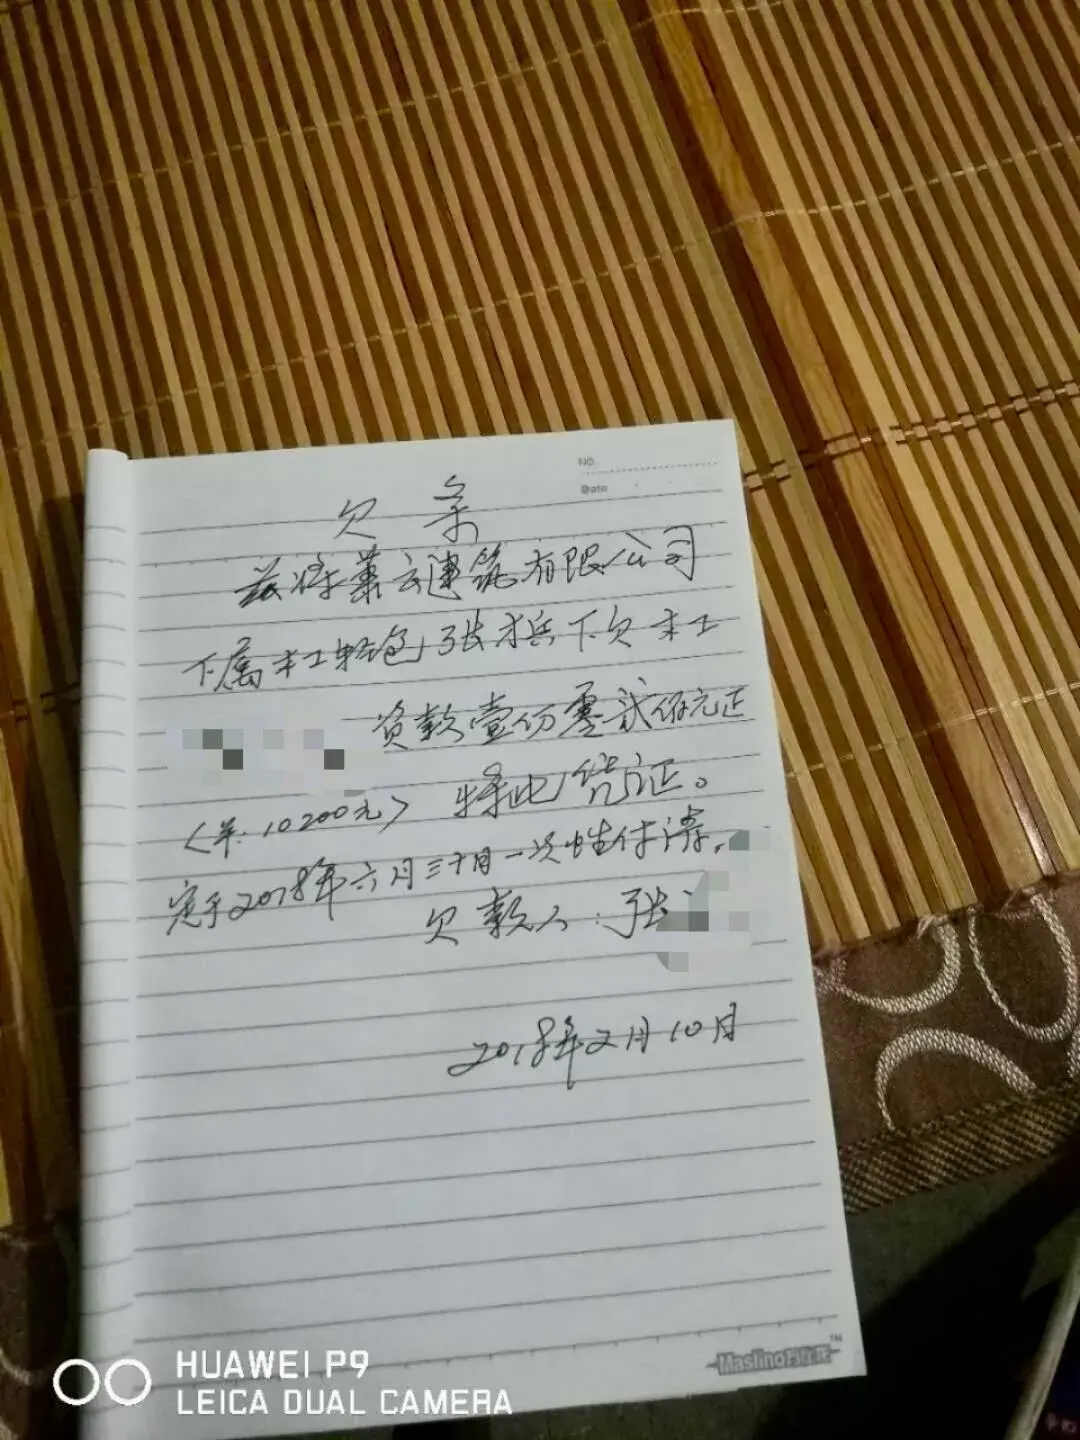 No.
Date
欠条
兹将萧云建筑有限公司
下属木工轻包张才兵下欠木工
资款壹份零贰佰元正
(羊:10200元) 特此凭证。
定于2018年六月三十日一次性付清。
欠款人:张
2018年2月10日
Maslino
HUAWEI P9
LEICA DUAL CAMERA